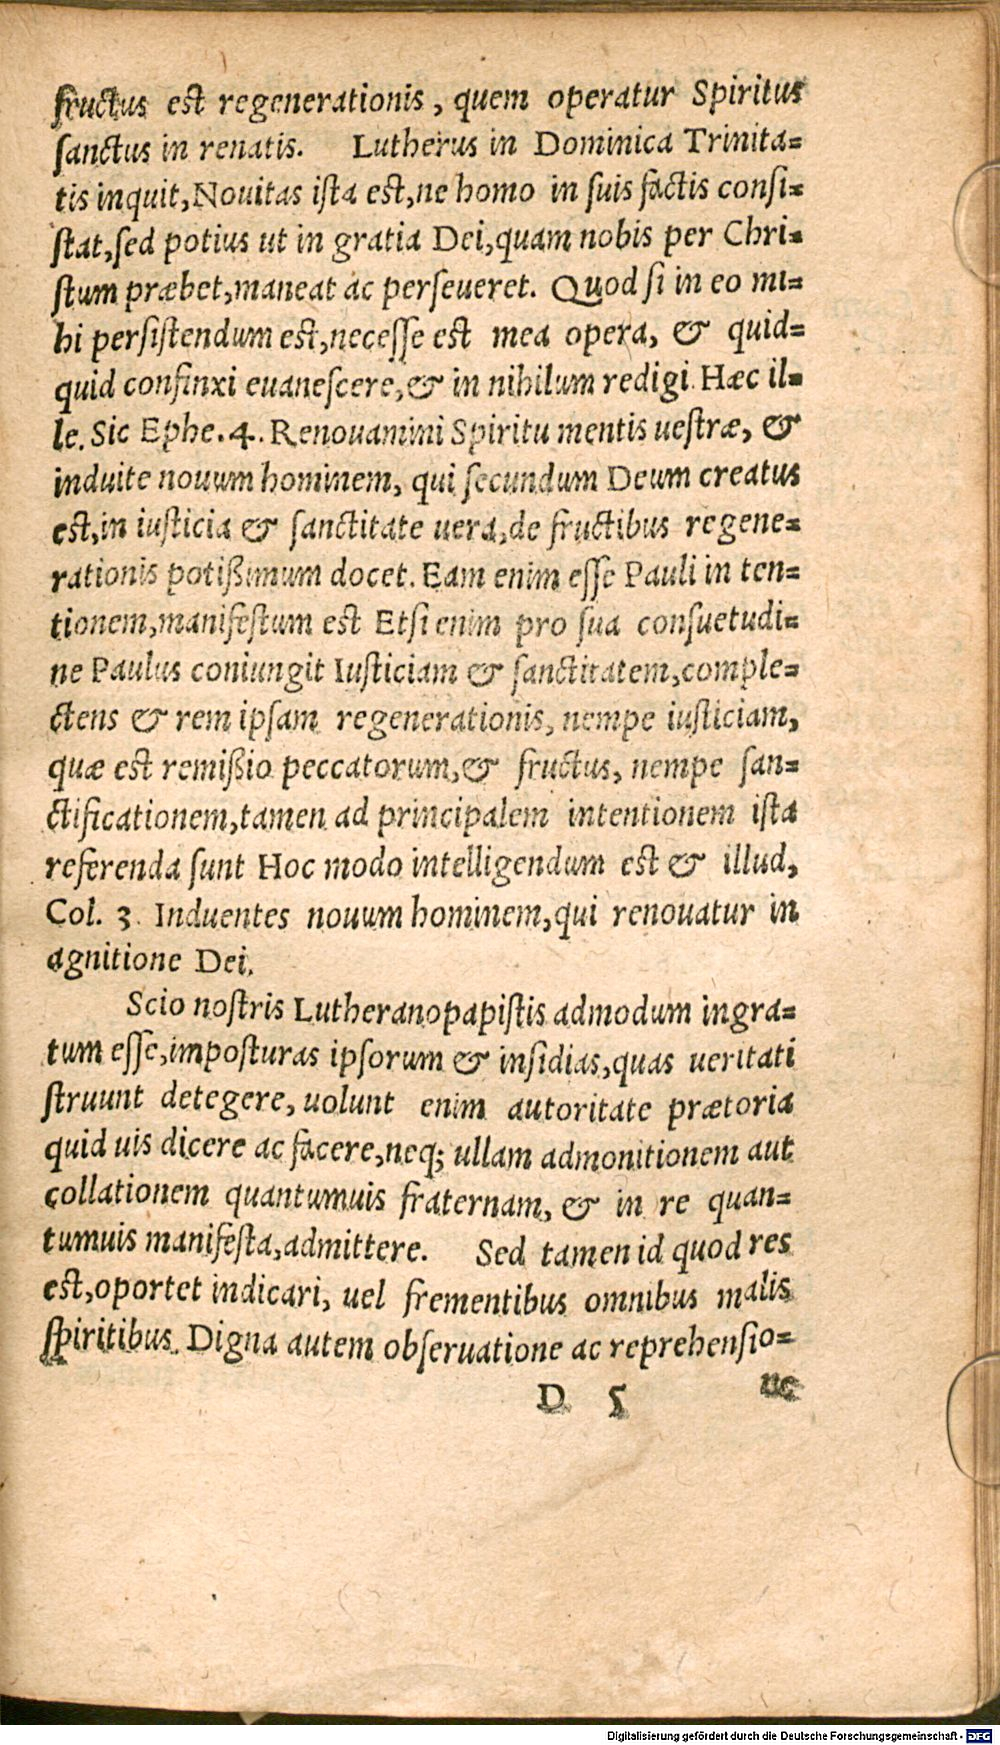 fructus est regenerationis, quem operatur Spiritus
sanctus in renatis. Lutherus in Dominica Trinita=
tis inquit, Nouitas ista est, ne homo in suis factis consi=
stat, sed potius ut in gratia Dei, quam nobis per Chri=
stum præbet, maneat ac perseueret. Quod si in eo mi=
hi persistendum est, necesse est mea opera, & quid=
quid confinxi euanescere, & in nihilum redigi. Hæc il=
le. Sic Ephe. 4. Renouamini Spiritu mentis uestræ, &
induite nouum hominem, qui secundum Deum creatus
est, in iusticia & sanctitate uera, de fructibus regene=
rationis potißimum docet. Eam enim esse Pauli in ten=
tionem, manifestum est Etsi enim pro sua consuetudi=
ne Paulus coniungit Iusticiam & sanctitatem, comple=
ctens & rem ipsam regenerationis, nempe iusticiam,
quæ est remißio peccatorum, & fructus, nempe san=
ctificationem, tamen ad principalem intentionem ista
referenda sunt Hoc modo intelligendum est & illud,
Col. 3. Induentes nouum hominem, qui renouatur in
agnitione Dei.
Scio nostris Lutheranopapistis admodum ingra=
tum esse, imposturas ipsorum & insidias, quas ueritati
struunt detegere, uolunt enim autoritate prætoria
quid uis dicere ac facere, neq; ullam admonitionem aut
collationem quantumuis fraternam, & in re quan=
tumuis manifesta, admittere. Sed tamen id quod res
est, oportet indicari, uel frementibus omnibus malis
spiritibus. Digna autem obseruatione ac reprehensio=
D 5 ne
Digitalisierung gefördert durch die Deutsche Forschungsgemeinschaft - DFG